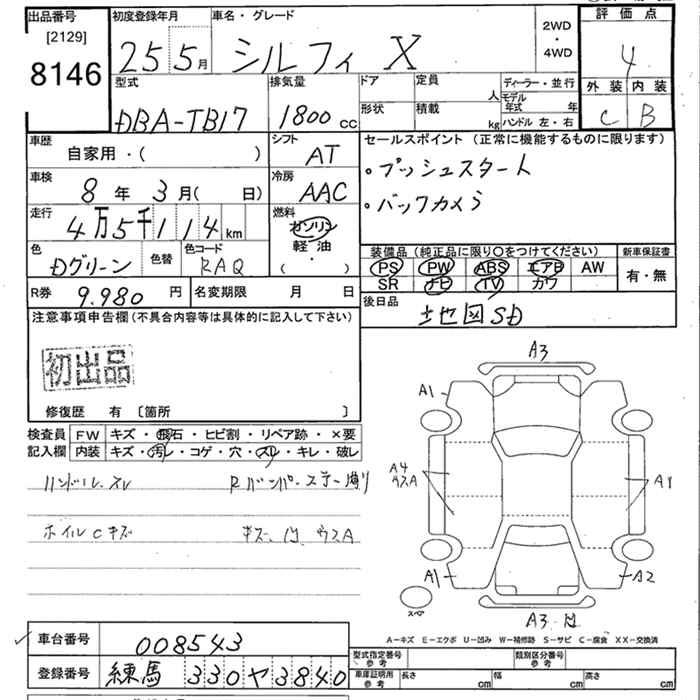 出品番号 初度登録年月 車名・グレード 2WD・4WD 評価点
[2129]
8146 25 5月 シルフィ X 4
外装 内装
C B
型式 排気量 ドア 定員 人 ディーラー・並行
DBA-TB17 1800 CC 形状 積載 kg モデル年式 年
ハンドル 左・右
車歴 自家用・( ) シフト AT セールスポイント (正常に機能するものに限ります)
・プッシュスタート
車検 8年 3月( 日) 冷房 AAC ・バックカメラ
走行 4万5千114km 燃料 ガソリン
軽油
・
( )
色 Dグリーン 色替 色コード RAQ
装備品 (純正品に限り○をつけてください) 新車保証書
PS PW ABS エアB AW 有・無
SR ナビ TV カワ
R券 9.980 円 名変期限 月 日 後日品 地図SD
注意事項申告欄(不具合内容等は具体的に記入して下さい)
初出品
修復歴 有 [箇所 ]
検査員記入欄 FW キズ・飛石・ヒビ割・リペア跡・×要
内装 キズ・汚レ・コゲ・穴・スレ・キレ・破レ
ハンドル スレ Rバンパーステー曲り
ホイルCキズ キズ、凹、ウスA
A3
A1
A4
ウスA
A1
A1
A2
スペア
A3 凹
A-キズ E-エクボ U-凹み W-補修跡 S-サビ C-腐食 XX-交換済
車台番号 008543
登録番号 練馬 330 ヤ 3840
型式指定番号 参考 類別区分番号 参考
車庫証明用 参考 長さ cm 幅 cm 高さ cm